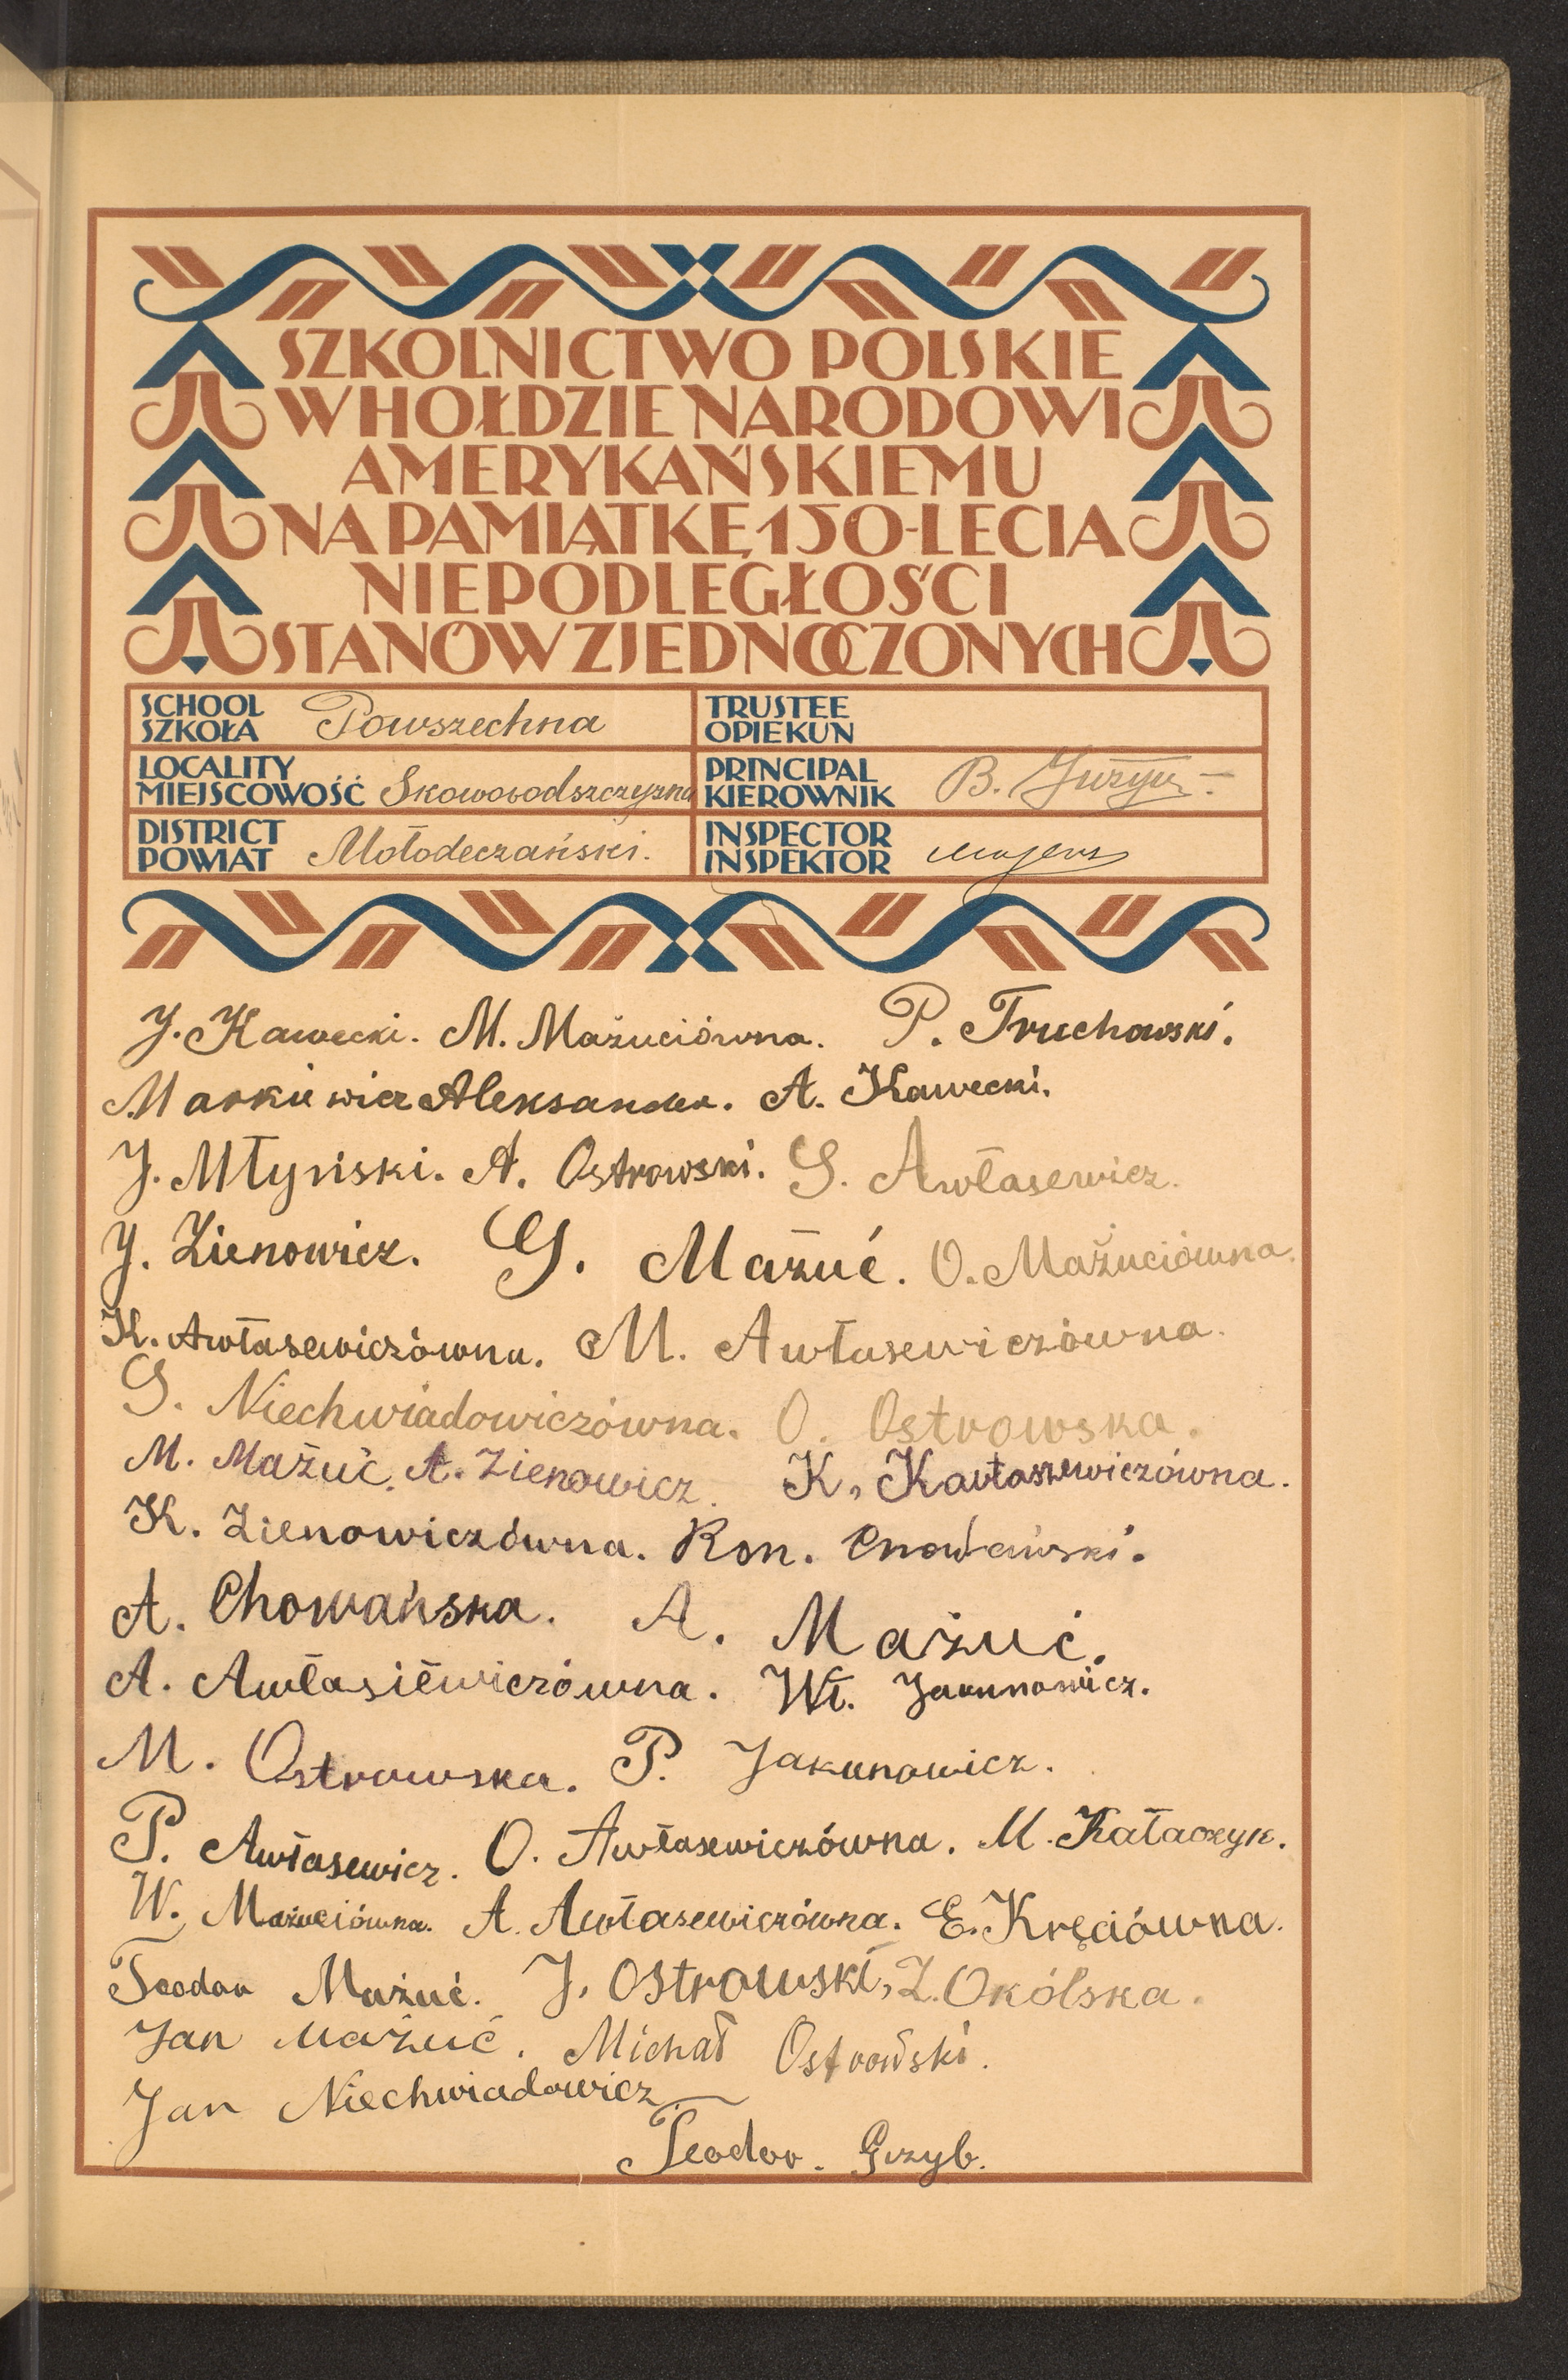 SZKOLNICTWO POLSKIE
W HOŁDZIE NARODOWI
AMERYKAŃSKIEMU
NA PAMIĄTKĘ 150-LECIA
NIEPODLEGŁOŚCI
STANÓW ZJEDNOCZONYCH
SCHOOL
SZKOŁA Powszechna
TRUSTEE
OPIEKUN
LOCALITY
MIEJSCOWOŚĆ Skoworodszczyzna
PRINCIPAL
KIEROWNIK B.
DISTRICT
POWIAT Mołodeczański.
INSPECTOR
INSPEKTOR
J. Kawecki. M. Mažuciówna. P. Truchowski.
Markiewicz Aleksander. A. Kawecki.
J. Młyński. A. Ostrowski. S. Awłasewicz.
J. Zienowicz. G. Mažuć. O. Mažuciówna.
K. Awłasewiczówna. M. Awłasewiczówna.
S. Niechwiadowiczówna. O. Ostrowska.
M. Mažuć. A. Zienowicz. K. Kartaszewiczówna.
K. Zienowiczówna. Kon. Chowański.
A. Chowańska. A. Mażuć.
A. Awłasiewiczówna. Wł. Jakunowicz.
M. Ostrowska. P. Jakunowicz.
P. Awłasewicz. O. Awłasewiczówna. M. Kałaczyk.
W. Mażuciówna. A. Awłasewiczówna. E. Kręciówna.
Teodor Mażuć. J. Ostrowski, Z. Okólska.
Jan Mažuć. Michał Ostrowski.
Jan Niechwiadowicz
Teodor. Grzyb.